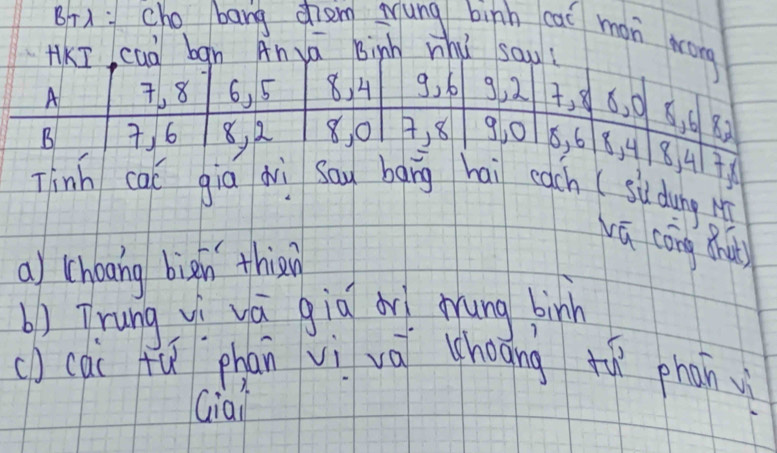 BTA: Cho bảng điểm trung bình các môn trong
HKI của bạn An và Bình như sau:
A 7,8 6,5 8,4 9,6 9,2 7,8 8,0 8,6 8,2
B 7,6 8,2 8,0 7,8 9,0 8,6 8,4 8,4
Tính các giá trị sau bằng hai cách (sử dụng MT
và công thức)
a) Khoảng biến thiên
b) Trung vị và giá trị trung bình
c) các tứ phân vị và khoảng tứ phân vị
Giải